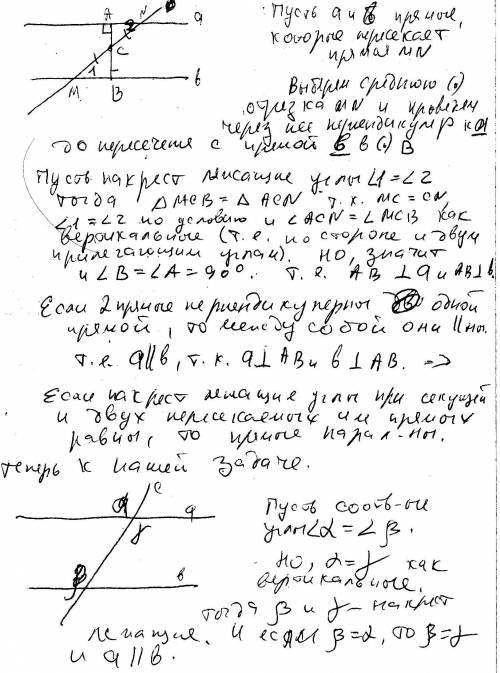 A N a
2
C
1
M B b
Пусть a и b прямые,
которые пересекает
прямая MN
Выберем среднюю (.)
отрезка MN и проведем
через нее перпендикуляр к a
до пересечения с прямой b в (.) B
Пусть накрест лежащие углы ∠1=∠2
тогда △MCB = △ACN т.к. MC=CN,
∠1=∠2 по условию и ∠ACN=∠MCB как
вертикальные (т.е. по стороне и двум
прилегающим углам). Но, значит
и ∠B=∠A=90°. т.е. AB⊥a и AB⊥b.
Если 2 прямые перпендикулярны одной
прямой, то между собой они ||ны.
т.е. a||b, т.к. a⊥AB и b⊥AB. =>
Если накрест лежащие углы при секущей
и двух пересекаемых ею прямых
равны, то прямые парал-ны.
теперь к нашей задаче.
c
α a
γ
β b
Пусть соотв-ые
углы ∠α=∠β.
Но, α=γ как
вертикальные,
тогда β и γ - накрест
лежащие. И если β=α, то β=γ
и a||b.